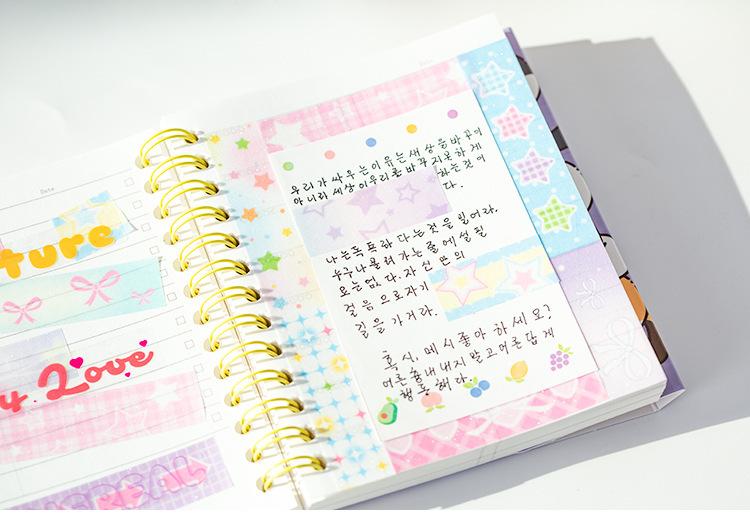 Date
ture
4. Love
Date
우리가 싸우는 이유는 세상을 바꾸기
아니라 세상이 우리를 바꾸지 못하게
하는 것이
다.
나는 독특하다는 것을 믿어라.
누구나 몰려가는 줄에 설 필
요는 없다. 자신만의
걸음으로 자기
길을 가거라.
혹시, 메시 좋아하세요?
어른 흉내내지 말고 어른답게
행동해라